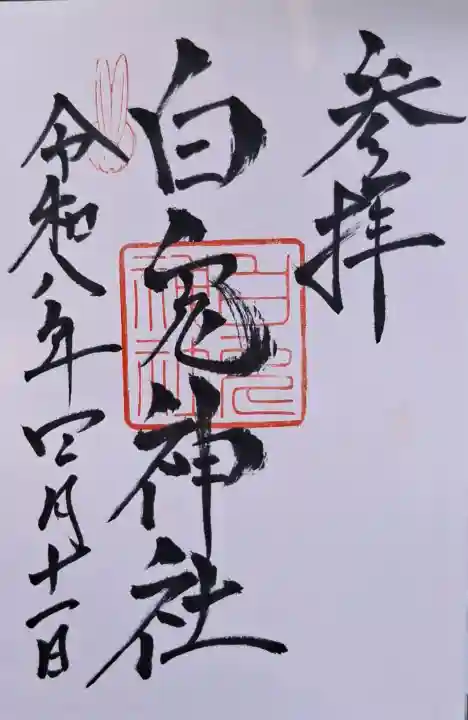 参拝
白兎神社
白兎神社
令和八年四月十一日